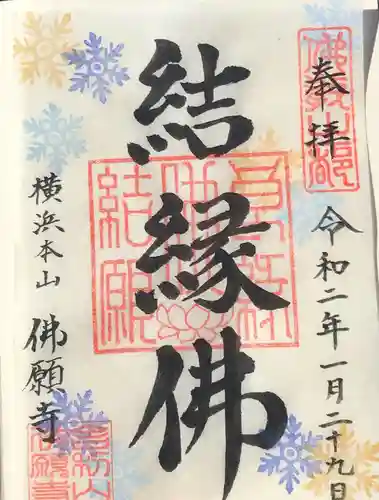 奉拝
令和二年一月二十九日
結縁佛
横浜本山
佛願寺